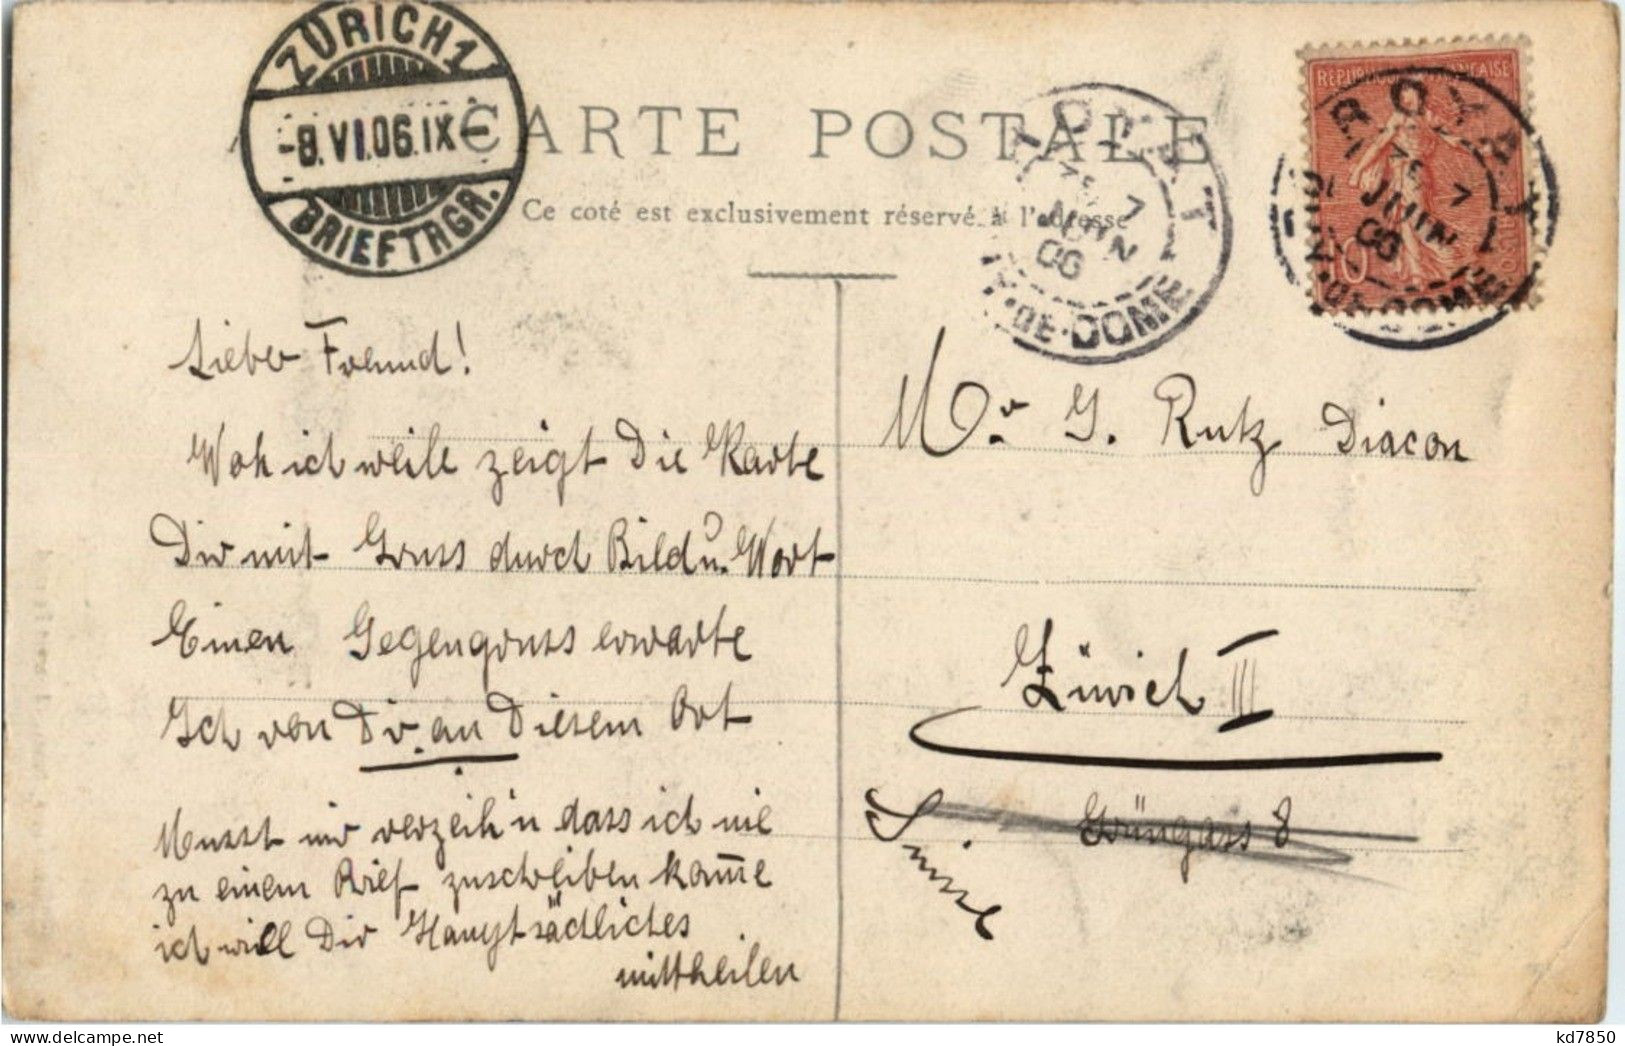 ZÜRICH 1
-8.VI.06.IX-
BRIEFTRGR.
CARTE POSTALE
Ce coté est exclusivement réservé à l'adresse
ROYAT
7
JUIN
06
DE-DOME
RÉPUBLIQUE FRANÇAISE
10
ROYAT
7
JUIN
06
DE-DOME
Lieber Freund!
Woh ich weile zeigt Die Karte
Dir mit Gruss durch Bild u. Wort
Einen Gegengruss erwarte
Ich von Dir an Diesem Ort
Musst mir verzeih'n dass ich nie
zu einem Brief zuschreiben kom̅e
ich will Dir Hauptsächliches
mittheilen
Mr. G. Rutz Diacon
Zürich III
Grüngass 8
Suisse
kd7850